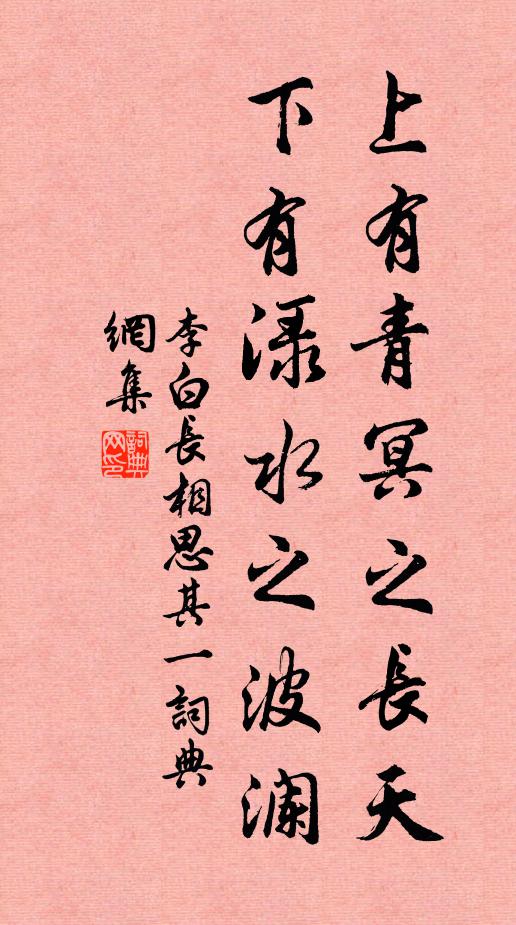 上有青冥之長天
下有淥水之波瀾
李白長相思其一詞典
網集
詞典網印